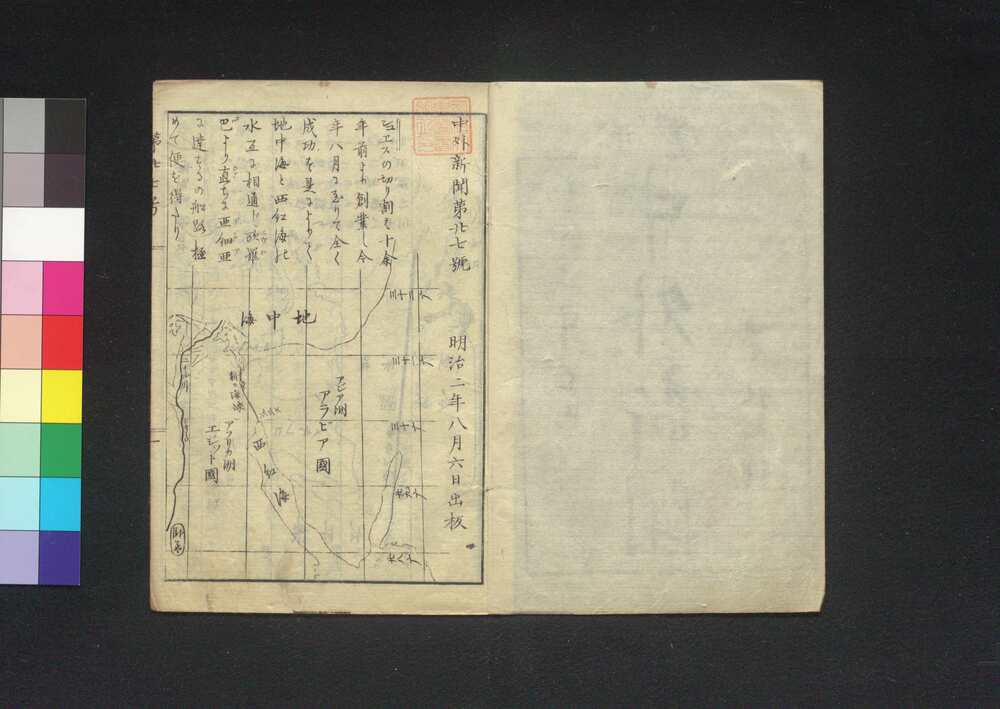 中外新聞第廿七號　明治二年八月六日出板
スエスの切り割も十余
年前より創業し今
年八月に至りて全く
成功を見るよりして
地中海と西紅海の
水互に相通し欧羅
巴より直ちに亜細亜
に達するの船路極
めて便を得たり
地中海
アジア洲
アラビア國
新の海峡
西紅海
アフリカ洲
エジット國
第廿七号